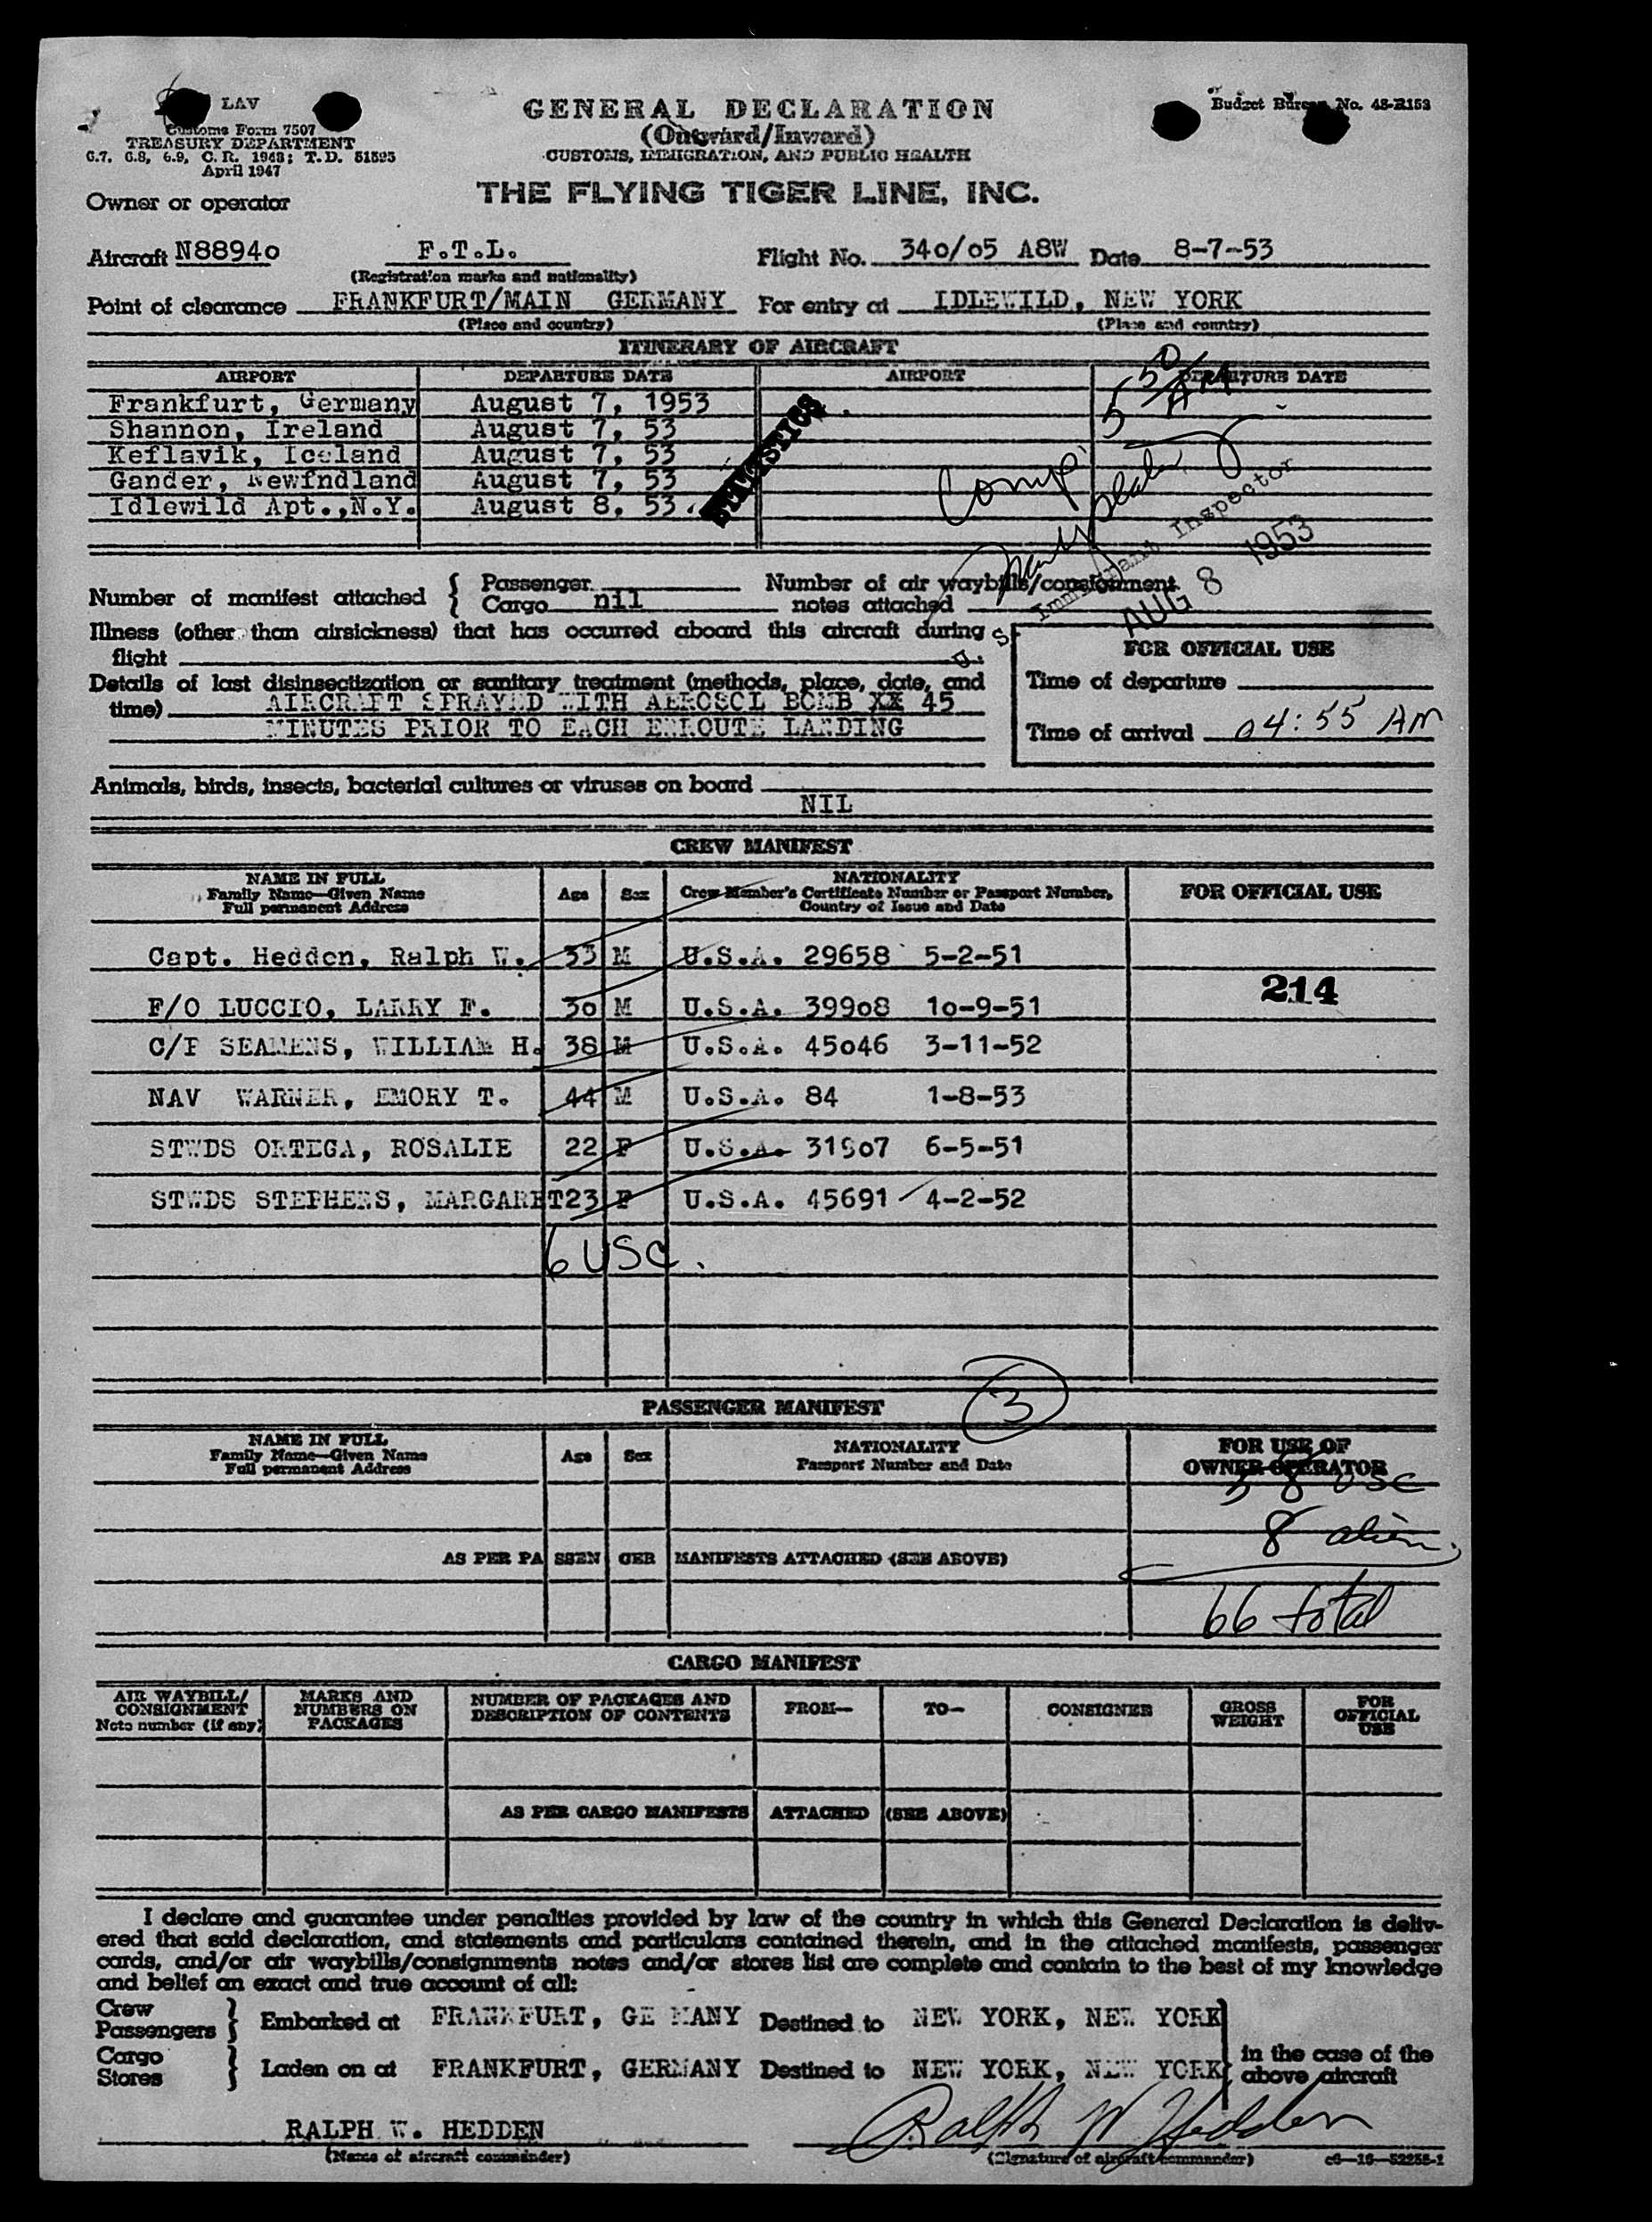 LAV
Customs Form 7507
TREASURY DEPARTMENT
6.7, 6.8, 6.9, C. R. 1943; T. D. 51595
April 1947
GENERAL DECLARATION
(Outward/Inward)
CUSTOMS, IMMIGRATION, AND PUBLIC HEALTH
THE FLYING TIGER LINE, INC.
Budget Bureau No. 48-R153
Owner or operator
Aircraft N88940 F.T.L. Flight No. 340/05 A8W Date 8-7-53
(Registration marks and nationality)
Point of clearance FRANKFURT/MAIN GERMANY For entry at IDLEWILD, NEW YORK
(Place and country) (Place and country)
ITINERARY OF AIRCRAFT
AIRPORT DEPARTURE DATE AIRPORT DEPARTURE DATE
Frankfurt, Germany August 7, 1953
Shannon, Ireland August 7, 53
Keflavik, Iceland August 7, 53
Gander, Newfndland August 7, 53
Idlewild Apt.,N.Y. August 8, 53.
STATISTICS
5 50 AM
Comp.
U. S. Immigrant Inspector
AUG 8 1953
Number of manifest attached { Passenger Number of air waybills/consignment
Cargo nil notes attached
Illness (other than airsickness) that has occurred aboard this aircraft during
flight
Details of last disinsectization or sanitary treatment (methods, place, date, and
time) AIRCRAFT SPRAYED WITH AEROSOL BOMB XX 45
MINUTES PRIOR TO EACH ENROUTE LANDING
FOR OFFICIAL USE
Time of departure
Time of arrival 04:55 AM
Animals, birds, insects, bacterial cultures or viruses on board
NIL
CREW MANIFEST
NAME IN FULL Age Sex NATIONALITY FOR OFFICIAL USE
Family Name—Given Name Crew Member's Certificate Number or Passport Number,
Full permanent Address Country of Issue and Date
Capt. Hedden, Ralph W. 33 M U.S.A. 29658 5-2-51
214
F/O LUCCIO, LARRY F. 30 M U.S.A. 39908 10-9-51
C/P SEAMENS, WILLIAM H. 38 M U.S.A. 45046 3-11-52
NAV WARNER, EMORY T. 44 M U.S.A. 84 1-8-53
STWDS ORTEGA, ROSALIE 22 F U.S.A. 31907 6-5-51
STWDS STEPHENS, MARGARET 23 F U.S.A. 45691 4-2-52
6 USC.
PASSENGER MANIFEST 3
NAME IN FULL Age Sex NATIONALITY FOR USE OF
Family Name—Given Name Passport Number and Date OWNER-OPERATOR
Full permanent Address
58 USC
8 alien
AS PER PASSENGER MANIFESTS ATTACHED (SEE ABOVE)
66 total
CARGO MANIFEST
AIR WAYBILL/ CONSIGNMENT Note number (if any) MARKS AND NUMBERS ON PACKAGES NUMBER OF PACKAGES AND DESCRIPTION OF CONTENTS FROM— TO— CONSIGNEE GROSS WEIGHT FOR OFFICIAL USE
AS PER CARGO MANIFESTS ATTACHED (SEE ABOVE)
I declare and guarantee under penalties provided by law of the country in which this General Declaration is deliv-
ered that said declaration, and statements and particulars contained therein, and in the attached manifests, passenger
cards, and/or air waybills/consignments notes and/or stores list are complete and contain to the best of my knowledge
and belief an exact and true account of all:
Crew
Passengers } Embarked at FRANKFURT, GE MANY Destined to NEW YORK, NEW YORK
Cargo
Stores } Laden on at FRANKFURT, GERMANY Destined to NEW YORK, NEW YORK
in the case of the
above aircraft
RALPH W. HEDDEN Ralph W Hedden
(Name of aircraft commander) (Signature of aircraft commander) c6—16—52255-1